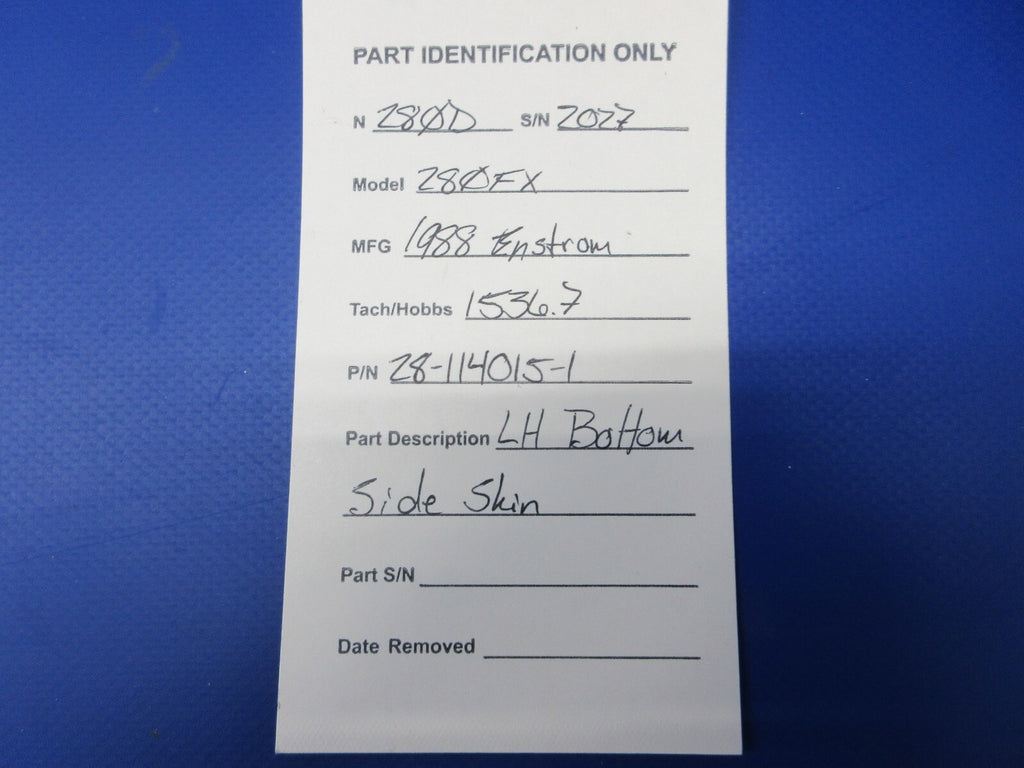 PART IDENTIFICATION ONLY
N 280D S/N 2027
Model 280FX
MFG 1988 Enstrom
Tach/Hobbs 1536.7
P/N 28-114015-1
Part Description LH Bottom
Side Skin
Part S/N
Date Removed